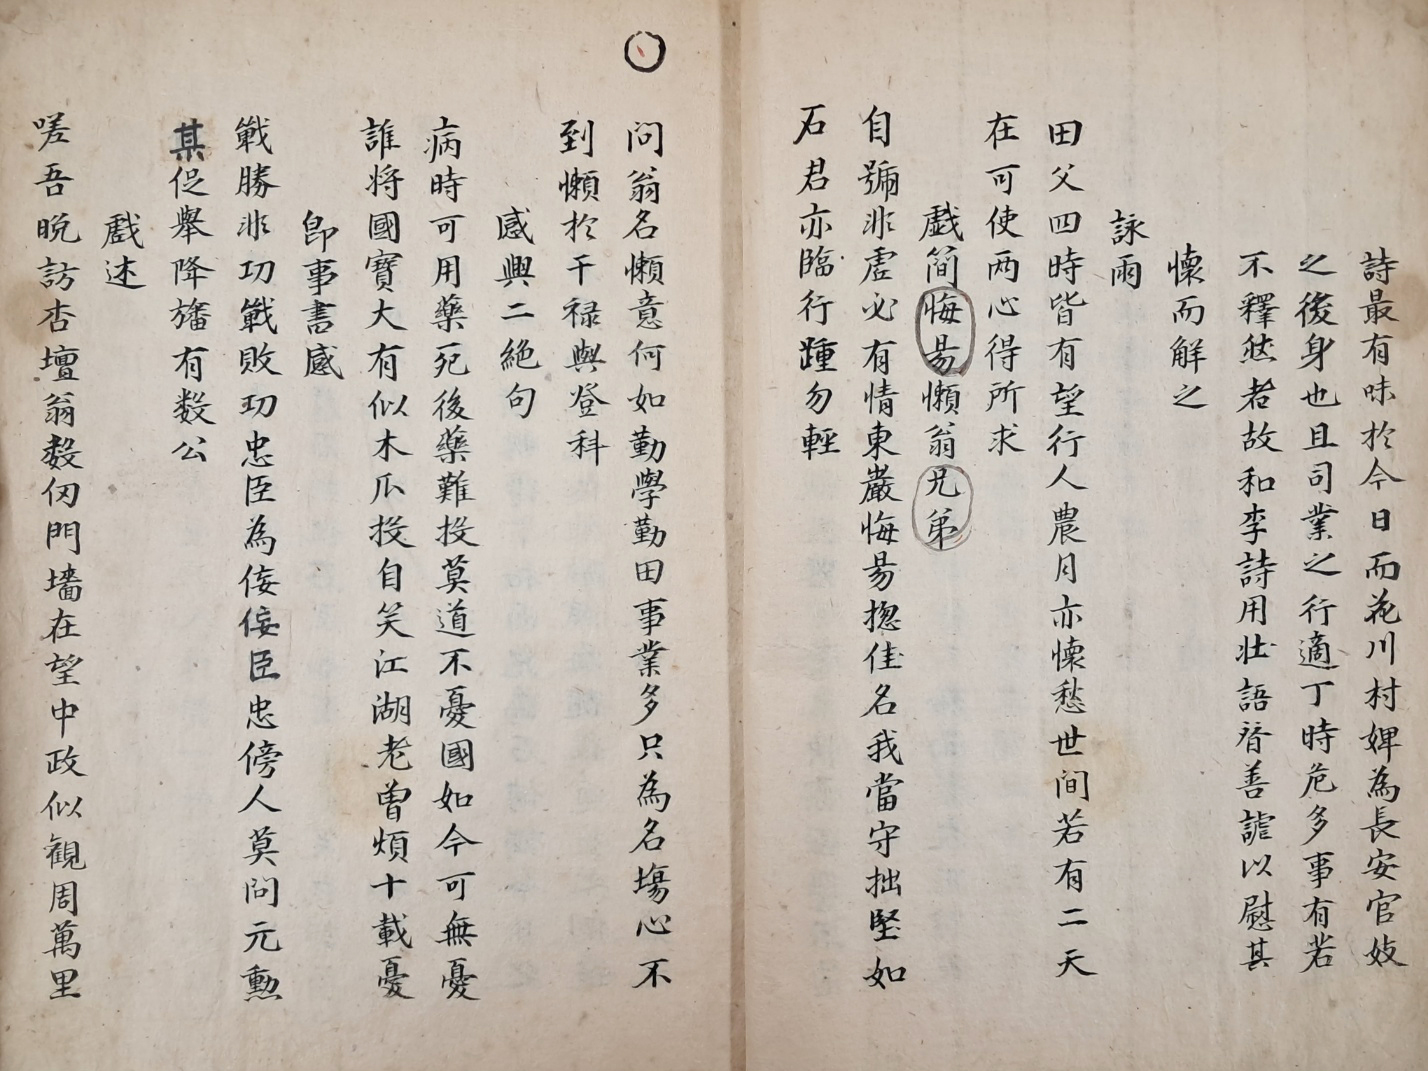 詩最有味於今日而花川村婢為長安官妓
之後身也且司業之行適丁時危多事有若
不釋然者故和李詩用壯語替善謔以慰其
懷而解之
詠雨
田父四時皆有望行人農月亦懷愁世間若有二天
在可使两心得所求
戱簡悔昜懶翁兄弟
自號非虛必有情東巖悔昜摠佳名我當守拙堅如
石君亦臨行踵勿輕
問翁名懶意何如勤學勤田事業多只為名塲心不
到懶於干禄與登科
感興二絕句
病時可用藥死後藥難投莫道不憂國如今可無憂
誰将國寶大有似木瓜投自笑江湖老曽煩十載憂
卽事書感
戰勝非功戰敗功忠臣為侫侫臣忠傍人莫問元勲
某促舉降旛有数公
戱述
嗟吾晩訪杏壇翁数仭門墻在望中政似觀周萬里